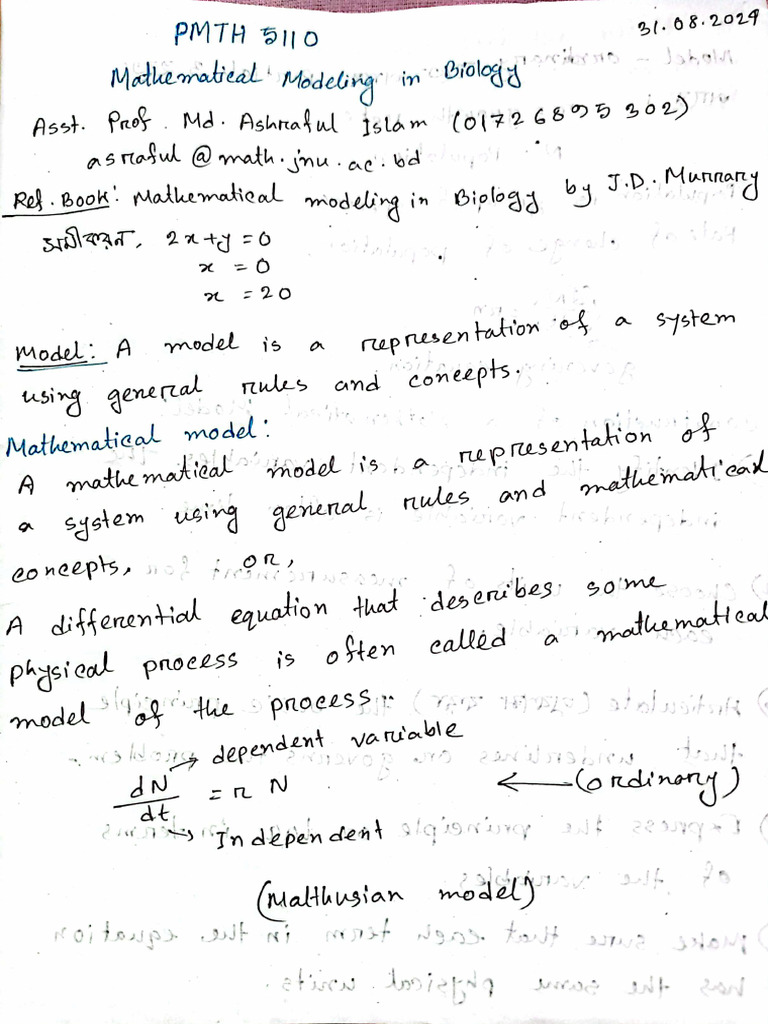 PMTH 5110
31.08.2024
Mathematical Modeling in Biology
Asst. Prof. Md. Ashraful Islam (01726895302)
asraful@math.jnu.ac.bd
Ref. Book: Mathematical modeling in Biology by J.D. Murrary
সমীকরন, 2x+y=0
x = 0
x = 20
Model: A model is a representation of a system
using general rules and concepts.
Mathematical model:
A mathematical model is a representation of
a system using general rules and mathematical
concepts, or,
A differential equation that describes some
physical process is often called a mathematical
model of the process.
→ dependent variable
dN/dt = r N ← (ordinary)
→ Independent
(Malthusian model)